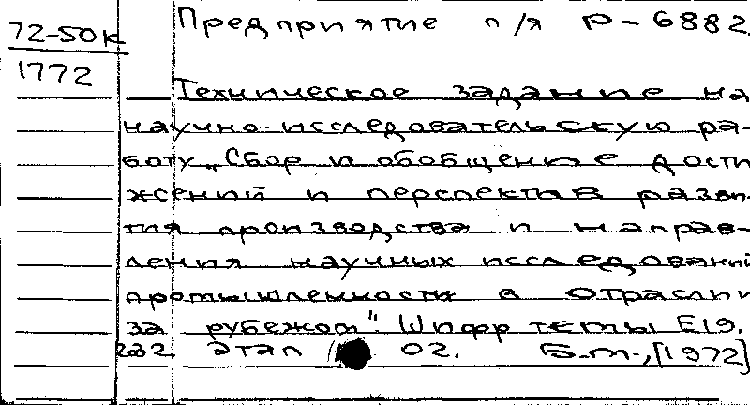 72-50к
1772
Предприятие п/я Р-6882.
Техническое задание на
научно-исследовательскую ра-
боту „Сбор и обобщение дости
жений и перспектив разви
тия производства и направ-
ления научных исследований
промышленности в отрасли
за рубежом". Шифр темы Е19.
232 этап 02. Б.м.,[1972]